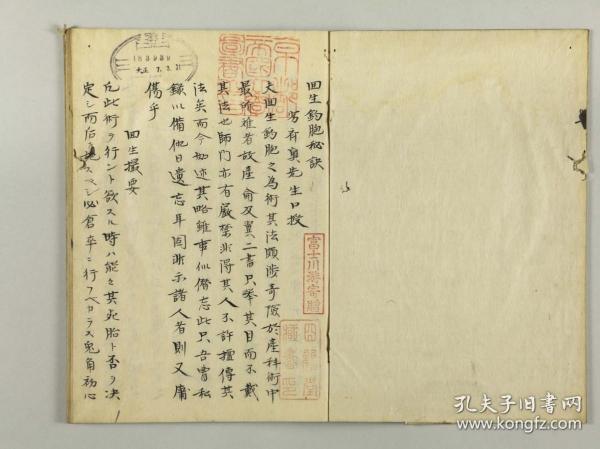 回生鈎胞秘訣
賀有真先生口授
夫回生鈎胞之為術其法頗渉奇険於產科術中
最所難者故產論及翼二書只挙其目而不載
其法也師門亦有厳禁非得其人不許擅傳其
法矣而今如述其略雖事似僭忘此只吾曹私
録以備他日遺忘耳固非示諸人者則又庸
傷乎
回生撮要
凡此術ヲ行ント欲スル時ハ能々其死胎ト否ヲ決
定シ而后施スベシ必倉卒ニ行フベカラス兎角初心
富士川游寄贈
183989
大正7.3.31
孔夫子旧书网
www.kongfz.com